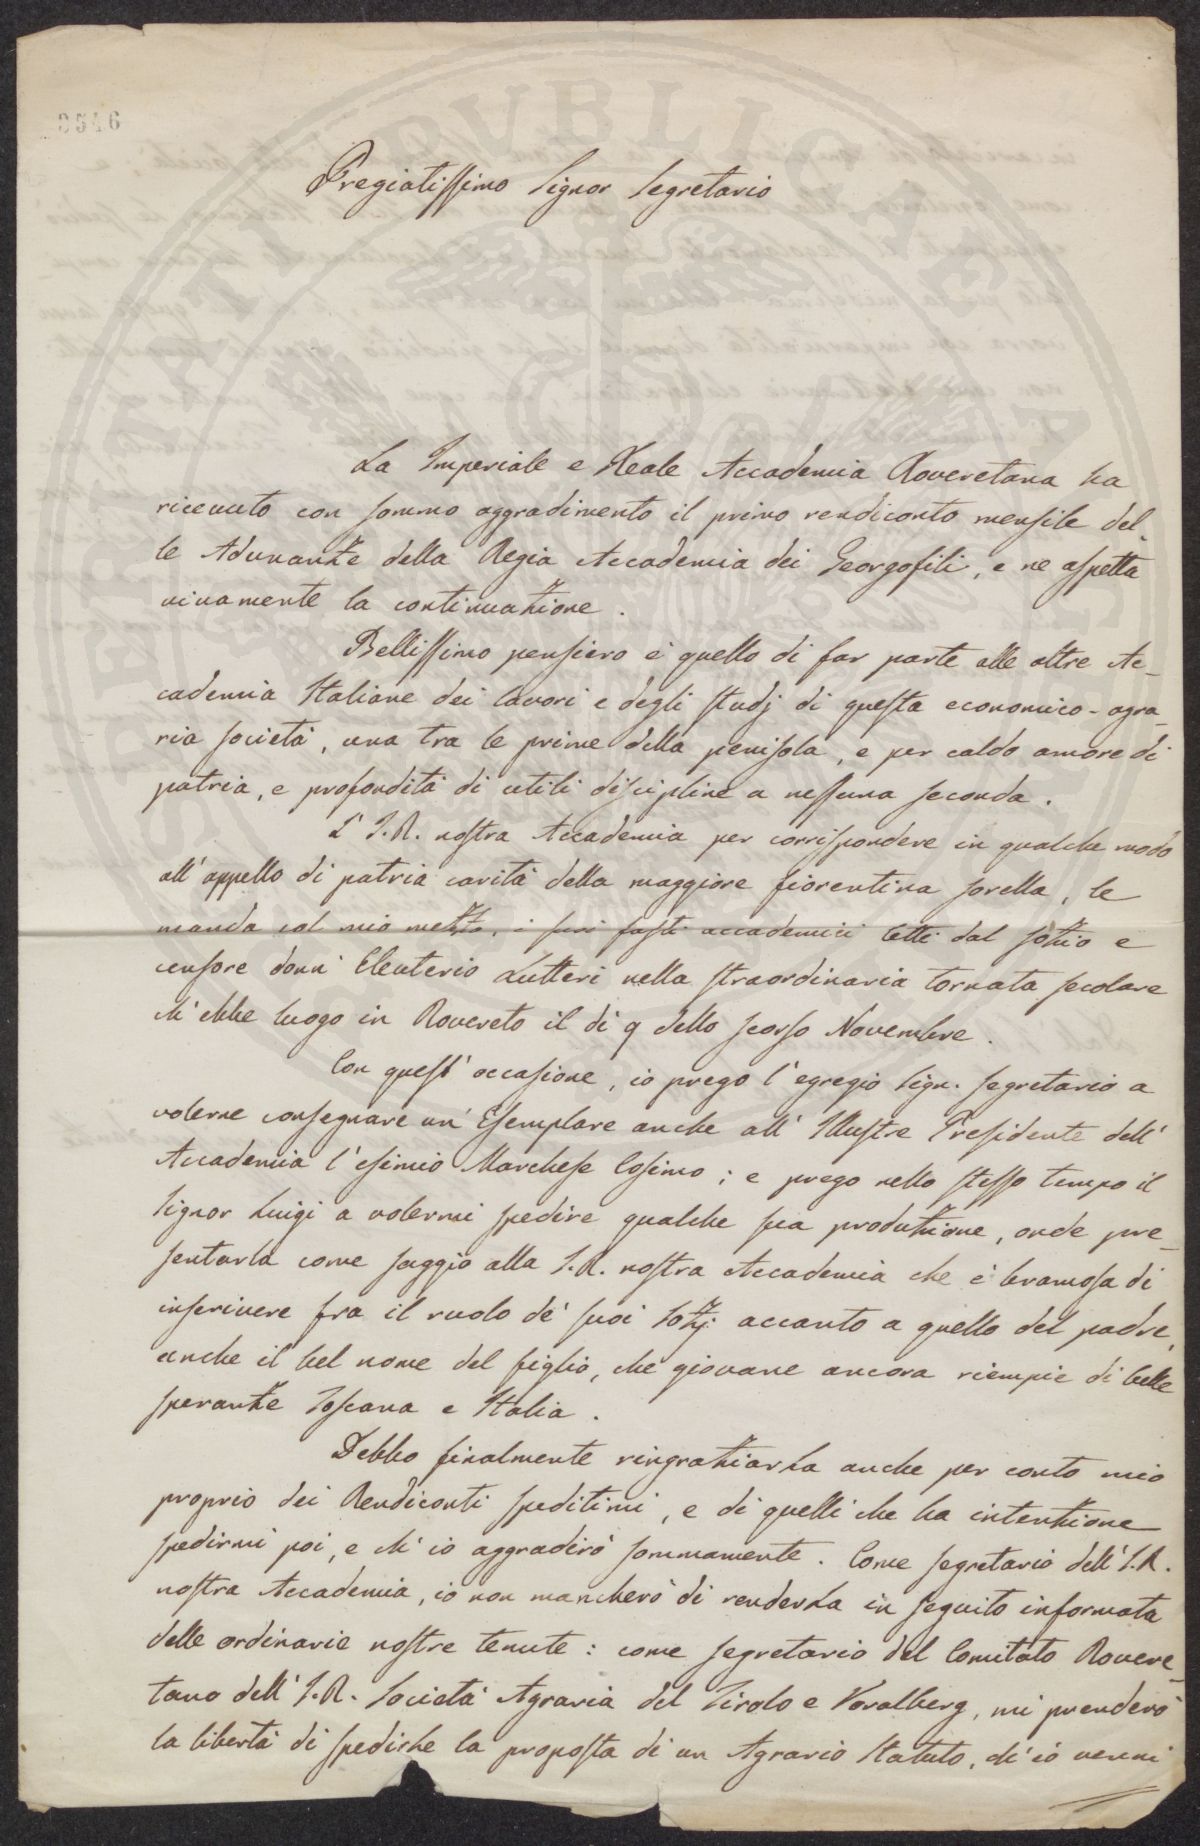 PROSPERITATI PUBLICAE AUGENDAE
Pregiatissimo Signor Segretario
La Imperiale e Reale Accademia Roveretana ha
ricevuto con sommo aggradimento il primo rendiconto mensile del-
le Adunanze della Regia Accademia dei Georgofili, e ne aspetta
vivamente la continuazione.
Bellissimo pensiero è quello di far parte alle altre Ac-
cademia Italiane dei lavori e degli studj di questa economico-agra-
ria società, una tra le prime della penisola, e per caldo amore di
patria, e profondità di utili discipline a nessuna seconda.
L' I. R. nostra Accademia per corrispondere in qualche modo
all' appello di patria carità della maggiore fiorentina sorella, le
manda col mio mezzo, i suoi fasti accademici letti dal sozio e
censore donn' Eleuterio Lutteri nella straordinaria tornata secolare
ch' ebbe luogo in Rovereto il dì 9 dello scorso Novembre.
Con quest' occasione, io prego l' egregio Sign. Segretario a
volerne consegnare un' Esemplare anche all' Illustre Presidente dell'
Accademia l' esimio Marchese Cosimo; e prego nello stesso tempo il
Signor Luigi a volermi spedire qualche sua produzione, onde pre-
sentarla come saggio alla I. R. nostra Accademia che è bramosa di
inscrivere fra il ruolo de' suoi Sozj accanto a quello del padre,
anche il bel nome del figlio, che giovane ancora riempie di belle
speranze Toscana e Italia.
Debbo finalmente ringraziarLa anche per conto mio
proprio dei Rendiconti speditimi, e di quelli che ha intenzione
spedirmi poi, e ch' io aggradirò sommamente. Come segretario dell' I. R.
nostra Accademia, io non mancherò di renderLa in seguito informata
delle ordinarie nostre tenute: come segretario del Comitato Rovere-
tano dell' I. R. Società Agraria del Tirolo e Voralberg, mi prenderò
la libertà di spedirLe la proposta di un Agrario Statuto, ch' io venni